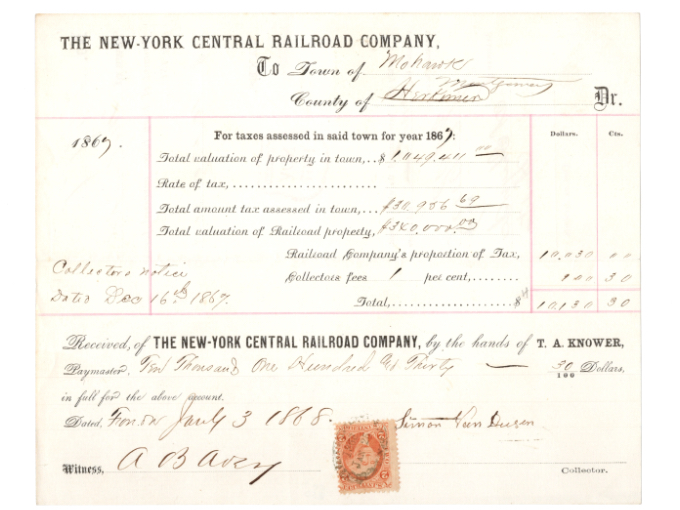 THE NEW-YORK CENTRAL RAILROAD COMPANY,
To Town of Mohawk
Montgomery
County of Herkimer Dr.
1867. For taxes assessed in said town for year 1867: Dollars. Cts.
Total valuation of property in town,.. $1,049,411 00
Rate of tax,
Total amount tax assessed in town,... $30,956 69
Total valuation of Railroad property, $340,000.00
Railroad Company's proportion of Tax, 10,030 00
Collectors notice Collectors fees 1 per cent, 100 30
Dated Dec 16th 1867. Total, $ 10,130 30
Received, of THE NEW-YORK CENTRAL RAILROAD COMPANY, by the hands of T. A. KNOWER,
Paymaster, Ten Thousand One Hundred & Thirty — 30/100 Dollars,
in full for the above account.
Dated, Fonda Jany 3 1868. Simon Van Dusen
Witness, A B Avery Collector.